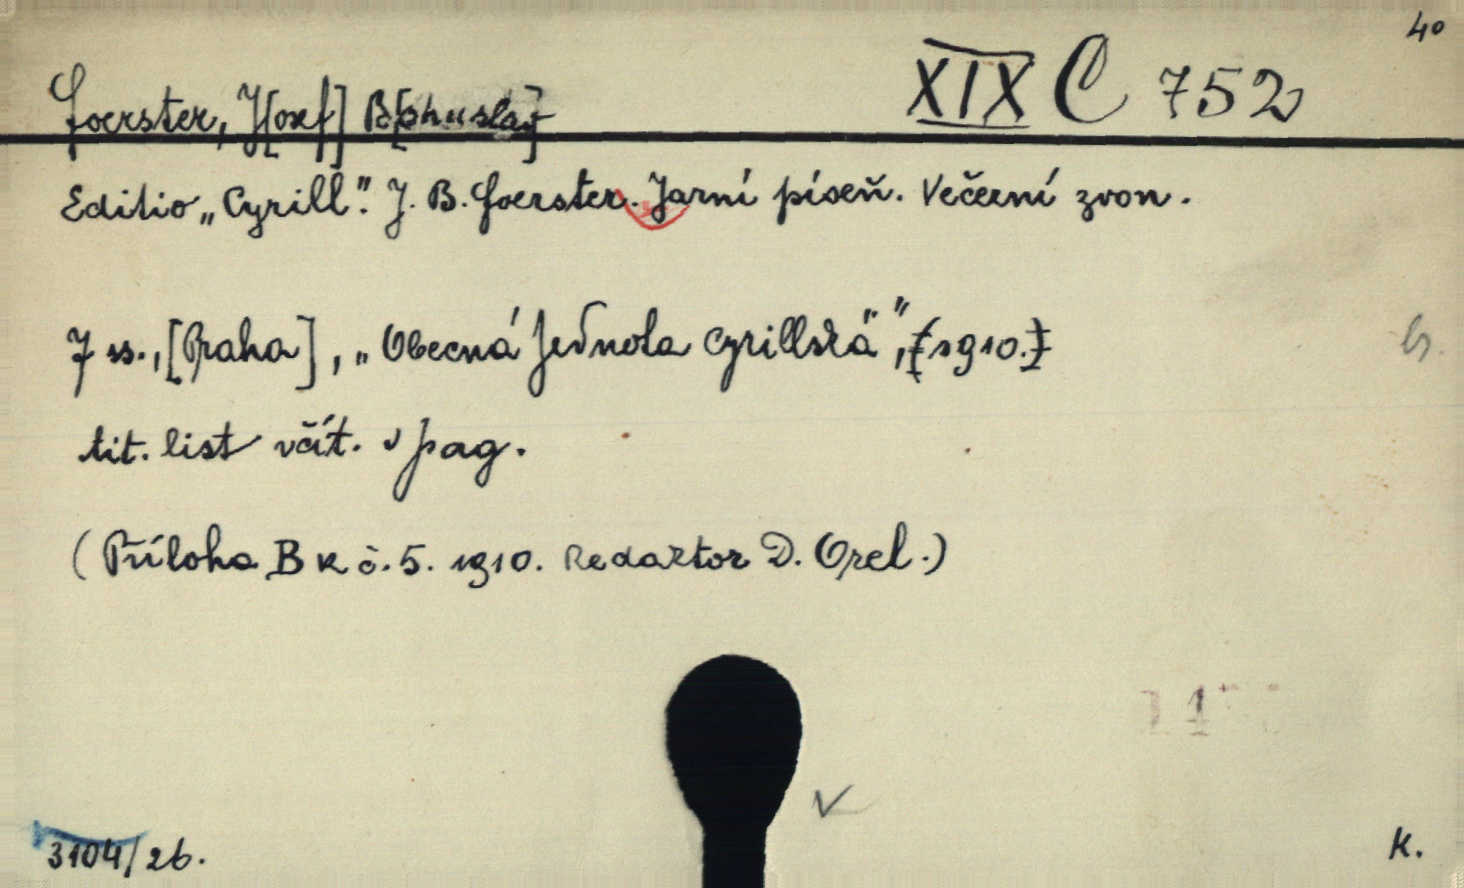 40
XIX C 752
Foerster, J[osef] B[ohuslav]
Editio „Cyrill“. J. B. Foerster. Jarní píseň. Večerní zvon.
7 ss., [Praha], „Obecná Jednota Cyrillská“, [1910.]
tit. list včít. v pag.
(Příloha B k č. 5. 1910. Redaktor D. Orel.)
3104/26.
K.